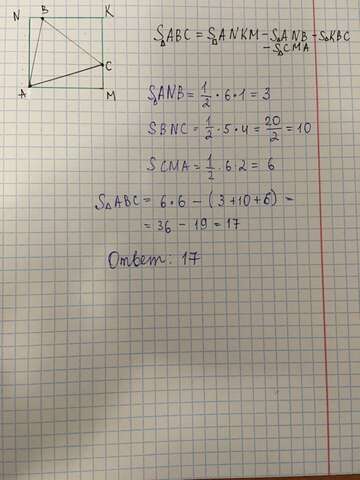 N B K
S△ABC = S△ANKM - S△ANB - S△KBC
- S△CMA
C
A M
S△ANB = 1/2 · 6 · 1 = 3
SBNC = 1/2 · 5 · 4 = 20/2 = 10
SCMA = 1/2 · 6 · 2 = 6
S△ABC = 6 · 6 - (3 + 10 + 6) =
= 36 - 19 = 17
Ответ: 17